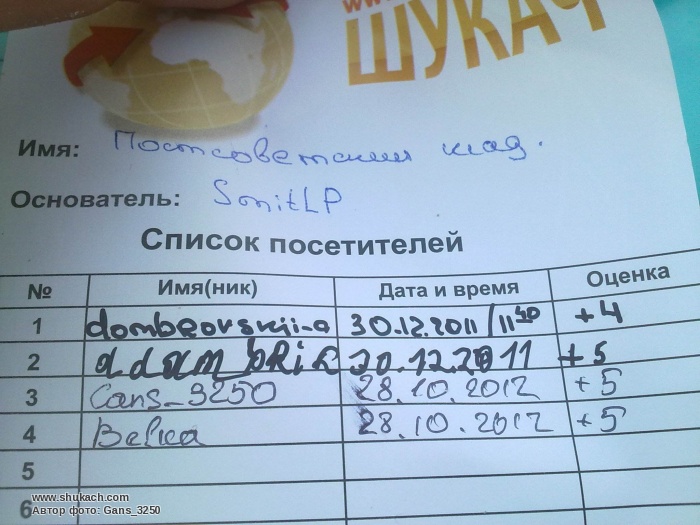 ШУКАЧ
Имя: Постсоветский клад.
Основатель: SonitLP
Список посетителей
№ Имя(ник) Дата и время Оценка
1 dombrovskii-a 30.12.2011/11 40 +4
2 30.12.2011 +5
3 Gans_3250 28.10.2012 +5
4 Belka 28.10.2012 +5
5
6
www.shukach.com
Автор фото: Gans_3250